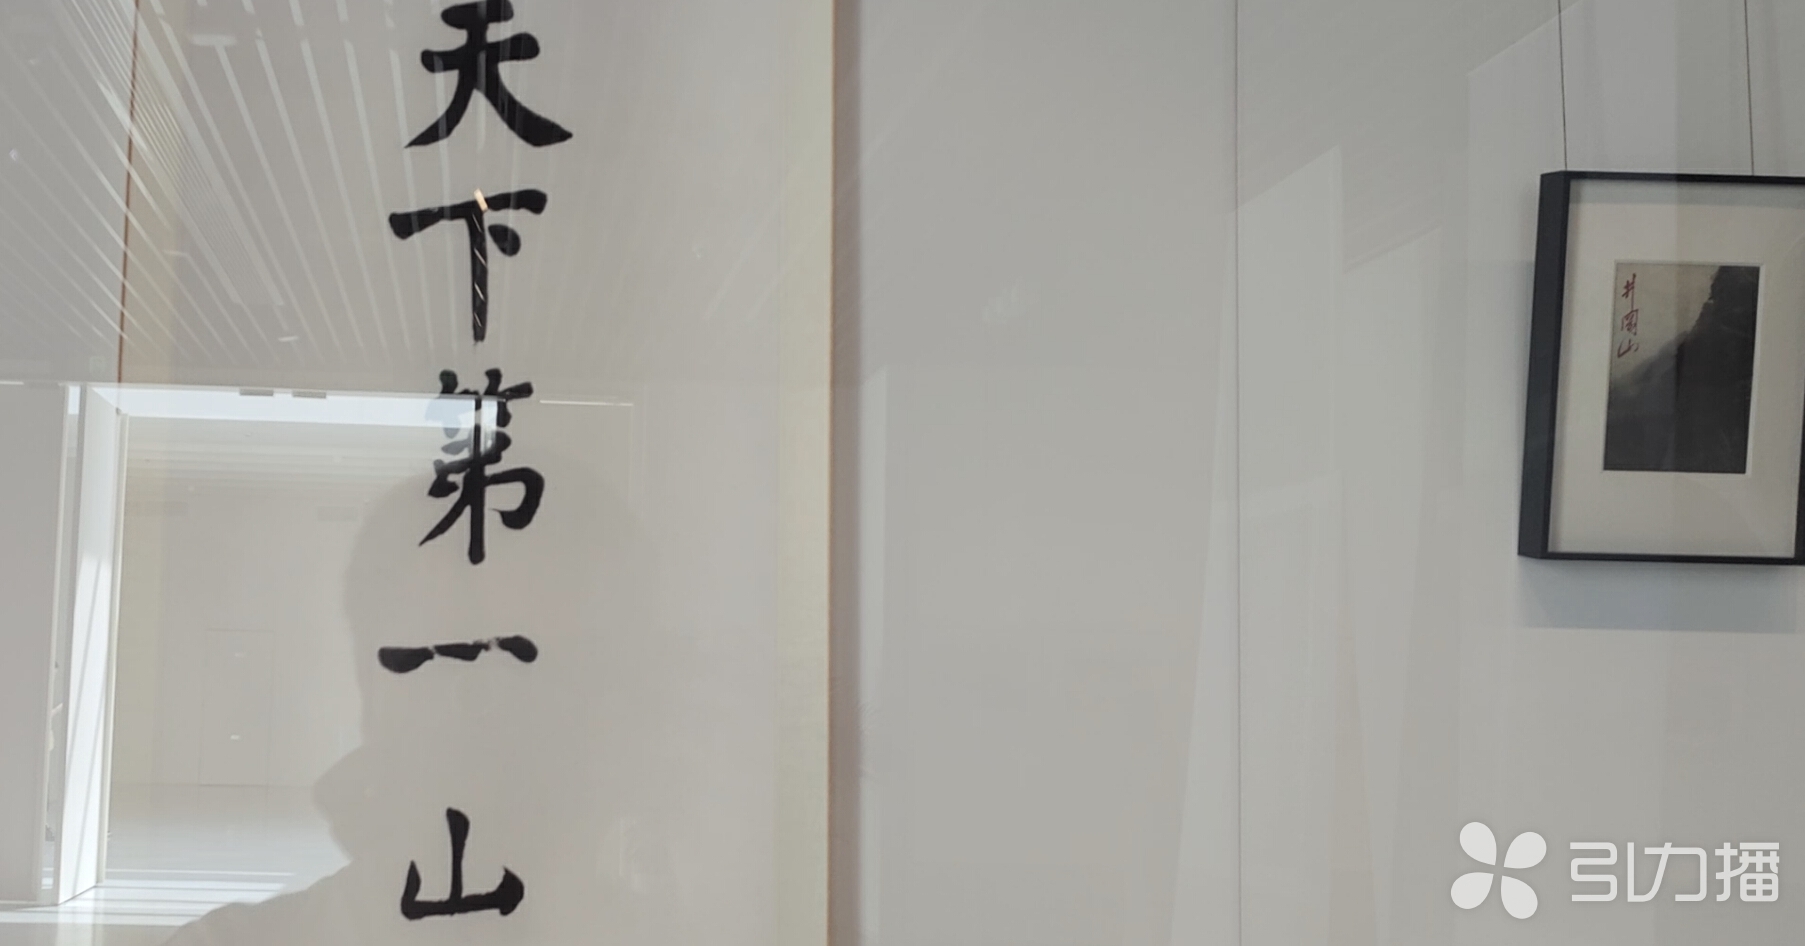 天下第一山
井岡山
引力播